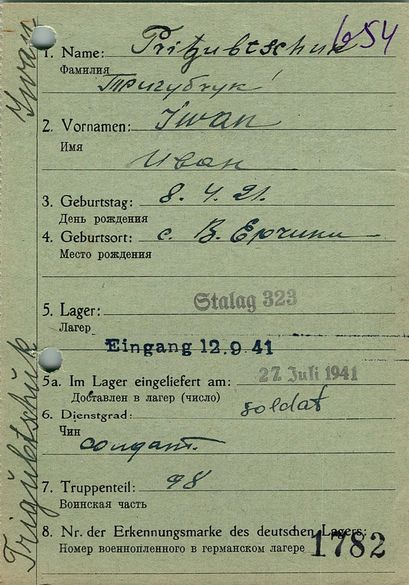 654
1. Name: Pritzubtschuk
Фамилия
Тригубчук
2. Vornamen: Iwan
Имя
Иван
3. Geburtstag: 8. 4. 21.
День рождения
4. Geburtsort: с. В.
Место рождения
5. Lager: Stalag 323
Лагерь
Eingang 12.9.41
5a. Im Lager eingeliefert am: 27. Juli 1941
Доставлен в лагерь (число)
6. Dienstgrad: soldat
Чин
солдат.
7. Truppenteil: 98
Воинская часть
8. Nr. der Erkennungsmarke des deutschen Lagers:
Номер военнопленного в германском лагере 1782
Trigubtschuk Iwan